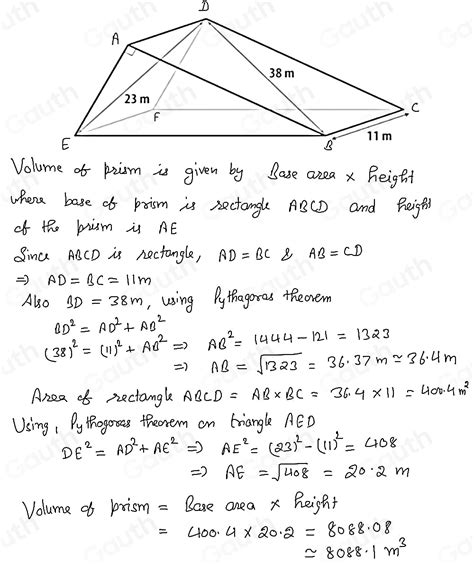 D
A
38 m
23 m
F
C
E
B
11 m
Volume of prism is given by Base area × height
where base of prism is rectangle ABCD and height
of the prism is AE
Since ABCD is rectangle, AD = BC & AB = CD
⇒ AD = BC = 11m
Also BD = 38m, using Pythagoras theorem
BD² = AD² + AB²
(38)² = (11)² + AB² ⇒ AB² = 1444 - 121 = 1323
⇒ AB = √1323 = 36.37 m ≃ 36.4m
Area of rectangle ABCD = AB × BC = 36.4 × 11 = 400.4 m²
Using, Pythagoras theorem on triangle AED
DE² = AD² + AE² ⇒ AE² = (23)² - (11)² = 408
⇒ AE = √408 = 20.2 m
Volume of prism = Base area × height
= 400.4 × 20.2 = 8088.08
≃ 8088.1 m³